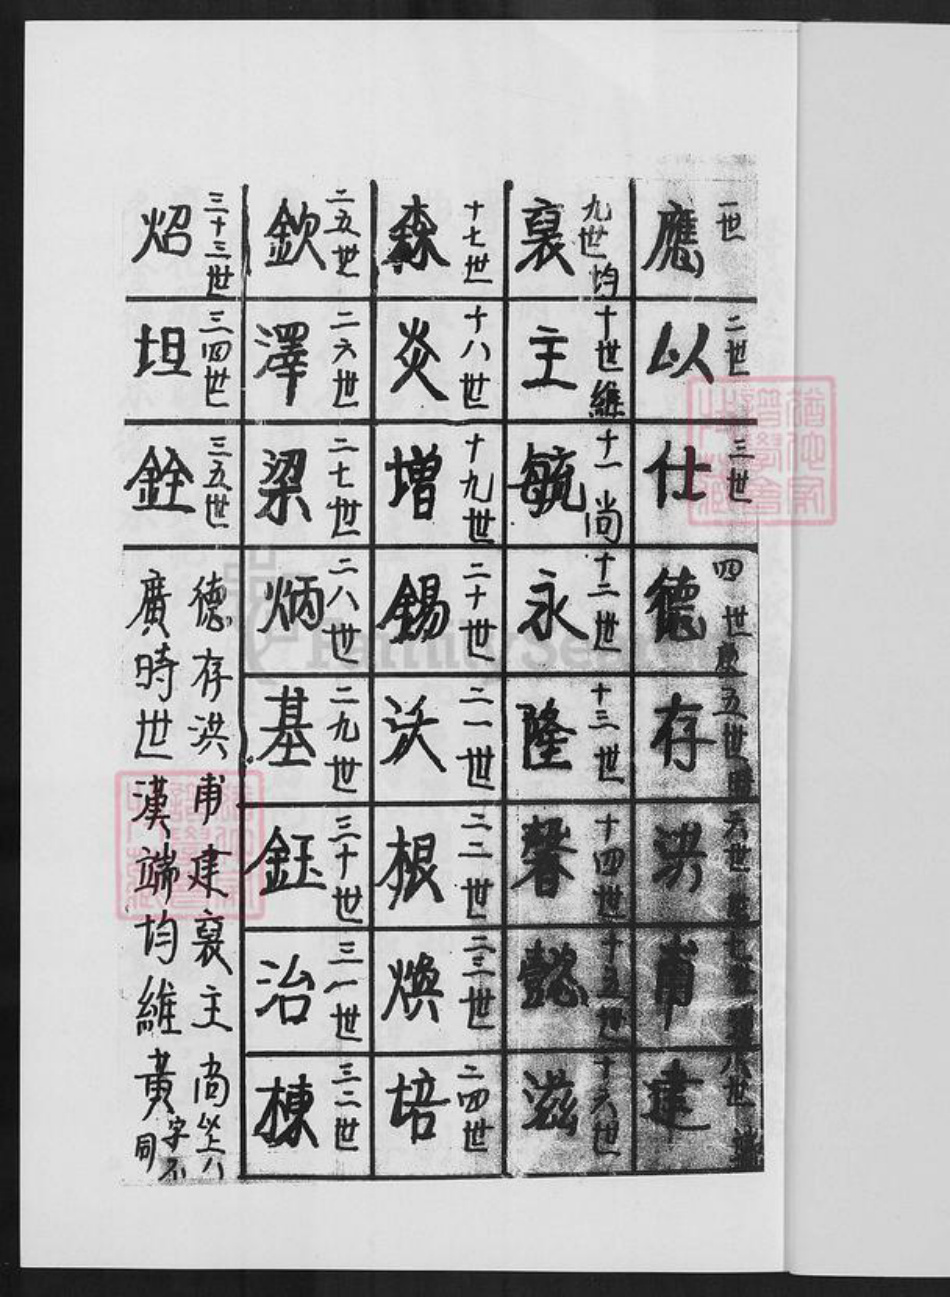 一世 應
二世 以
三世 仕
四世 德
五世 存
六世 洪
七世 甫
八世 建
九世 均 裒
十世 維 主
十一 尚 毓
十二世 永
十三世 隆
十四世 馨
十五世 懿
十六世 滋
十七世 森
十八世 炎
十九世 增
二十世 錫
二一世 沃
二二世 根
二三世 煥
二四世 培
二五世 欽
二六世 澤
二七世 梁
二八世 炳
二九世 基
三十世 鈺
三一世 治
三二世 棟
三十三世 炤
三四世 坦
三五世 銓
德存洪甫建裒主尚以上八
廣時世漢端均維黃字不同